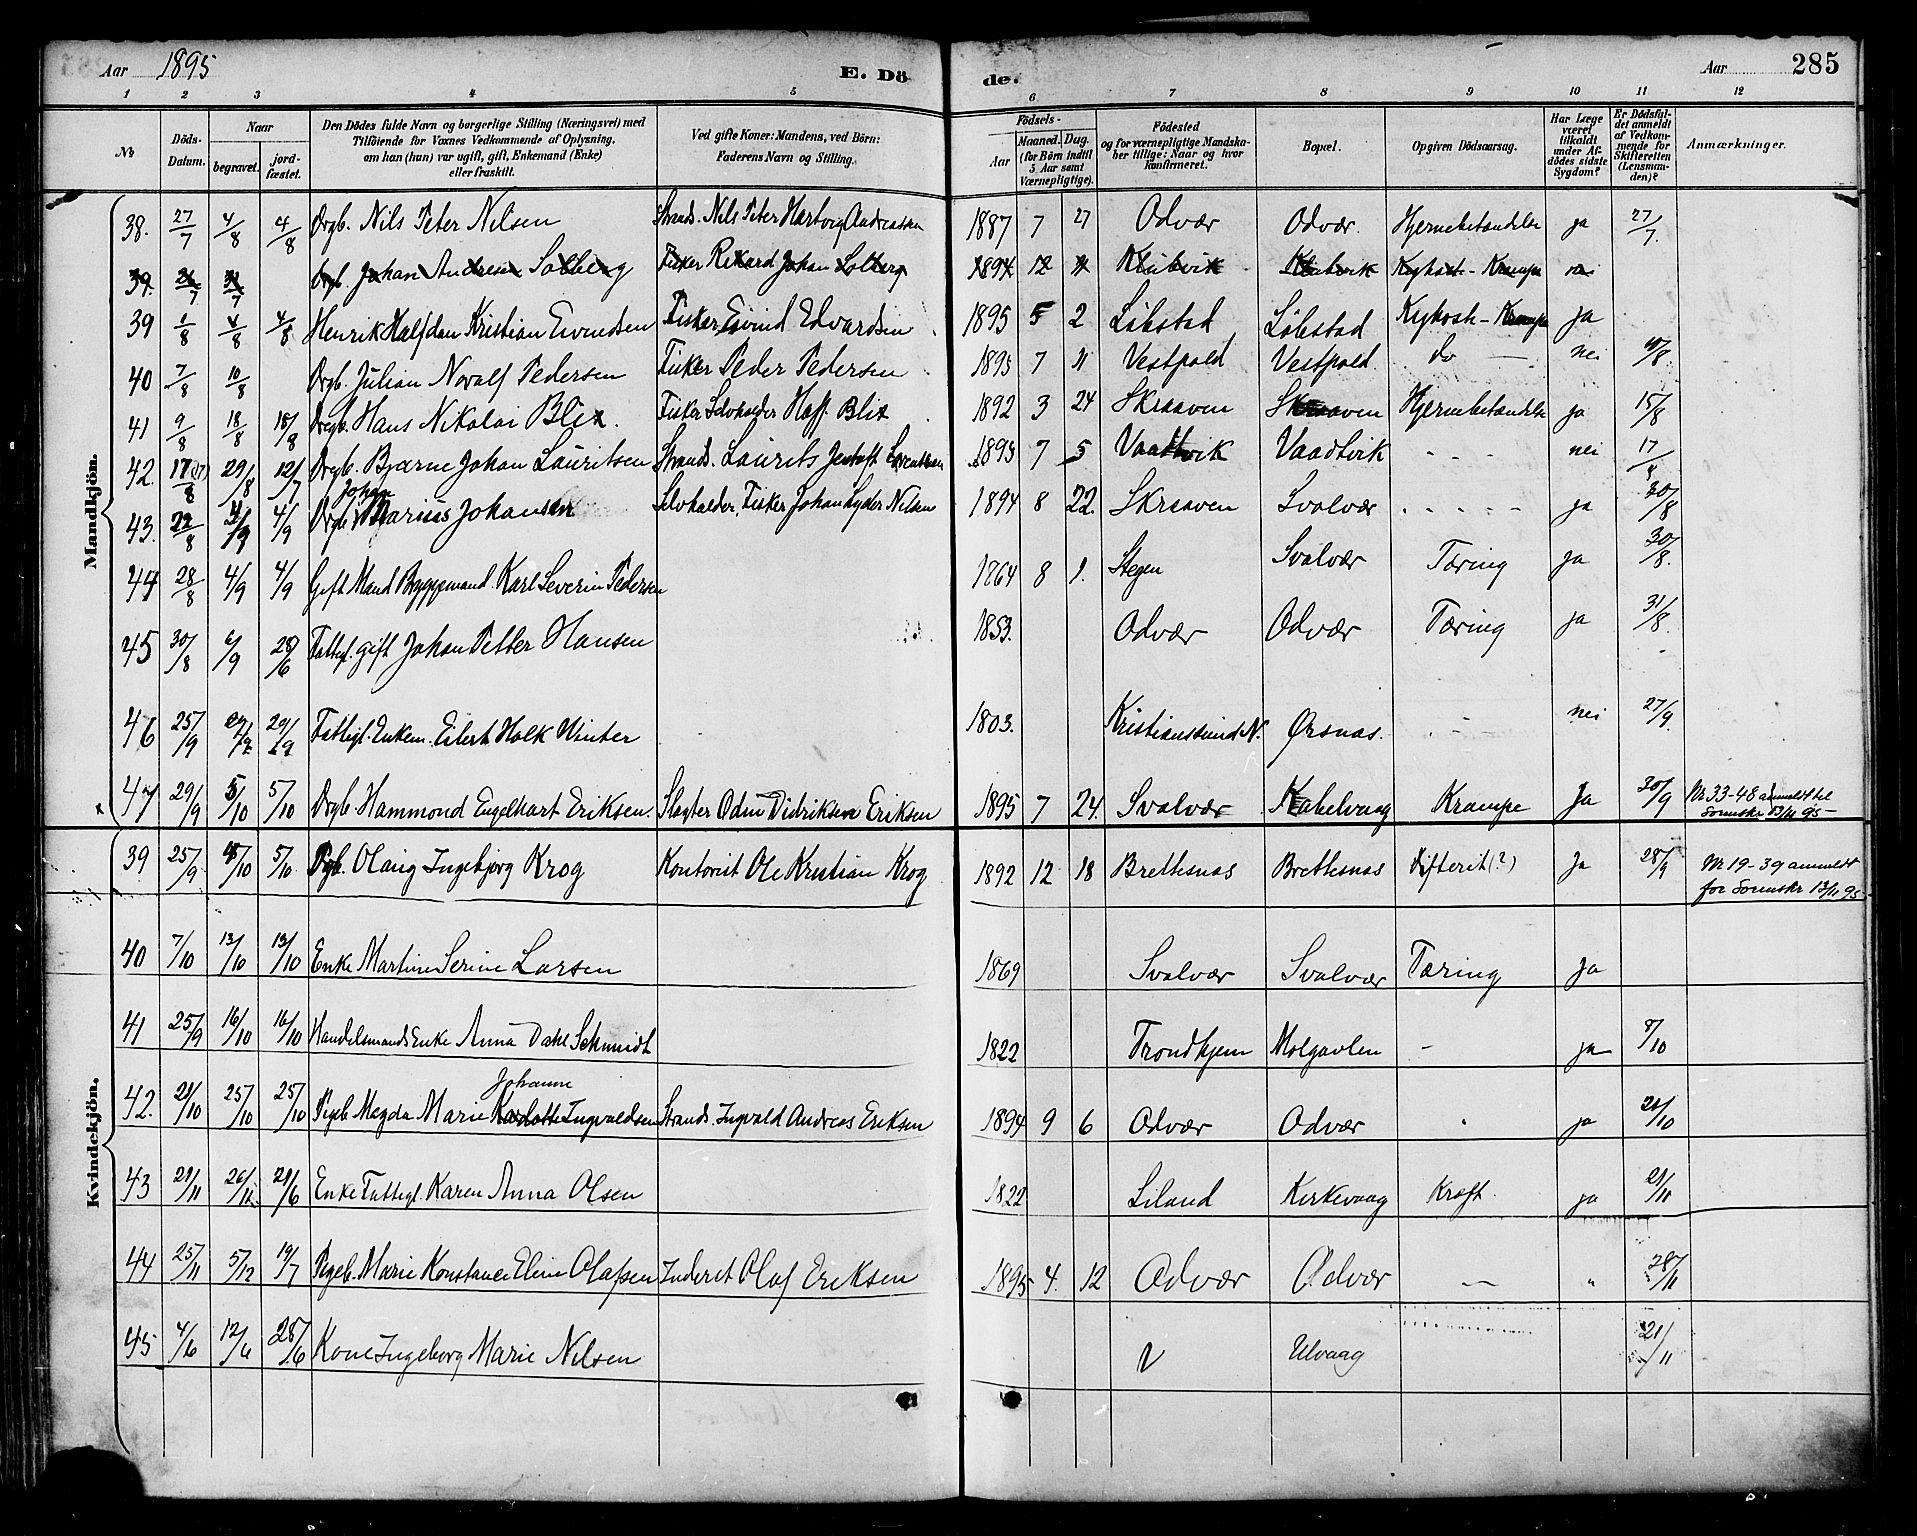 Aar 1895 E. Dö de. Aar 285
1 2 3 4 5 6 7 8 9 10 11 12
No Döds-Datum. Naar begravet. jord-fæstet. Den Dödes fulde Navn og borgerlige Stilling (Næringsvei) med Tilföiende for Voxnes Vedkommende af Oplysning, om han (hun) var ugift, gift, Enkemand (Enke) eller fraskilt. Ved gifte Koner: Mandens, ved Börn: Faderens Navn og Stilling. Födsels- Aar Maaned. Dag. (for Börn indtil 5 Aar samt Værnepligtige). Födested og for værnepligtige Mandska-ber tillige: Naar og hvor konfirmeret. Bopæl. Opgiven Dödsaarsag. Har Læge været tilkaldt under Af-dödes sidste Sygdom? Er Dödsfal-det anmeldt af Vedkom-mende for Skifteretten (Lensman-den)? Anmærkninger.
Mandkjön.
38. 27/7 4/8 4/8 Drgb. Nils Peter Nilsen Strands. Nils Peter Hartvig Andreassen 1887 7 27 Odvær Odvær. Hjernebetændelse ja 27/7.
39. 26/7 31/7 Drgb. Johan Andreas Solberg Fisker Rikard Johan Solberg 1894 12 11 Klubvik Klubvik Kighoste-Krampe
39 1/8 4/8 4/8 Henrik Halfdan Kristian Eivindsen Fisker Eivind Edvardsen 1895 5 2 Löbstad Löbstad Kighoste-Krampe ja
40 7/8 10/8 Drgb. Julian Noralf Pedersen Fisker Peder Pedersen 1895 7 11 Vestpold Vestpold. do — nei 10/8.
41 9/8 18/8 18/8 Drgb. Hans Nikolai Blix. Fisker Selvholder Haff. Blix 1892 3 24 Skraaven Skraaven Hjernebetændelse ja 15/8
42. 17/8 29/8 12/7 Drgb. Bjarne Johan Lauritsen Strands. Laurits Jentoft 1895 7 5 Vaadtvik Vaadtvik - - - nei 17/8
43. 22/8 4/9 4/9 Drgb. Johan Marius Johansen Selvholder, Fisker Johan Lyder Nilsen 1894 8 22. Skraaven Svolvær - - - - - ja 30/8
44 28/8 4/9 4/9 Gift Mand Byggemand. Karl Severin Pedersen 1864 8 1. Stegen Svolvær Tæring ja 30/8.
45 30/8 6/9 28/6 Fattigl. gift Johan Petter Hansen 1853. Odvær Odvær Tæring ja 31/8.
46 25/9 29/9 29/9 Fattigl. Enkem. Eilert Holk Winter 1803. Kristianssund N. Ørsnas. - - - nei 27/9.
47 29/9 5/10 5/10 Drgb. Hammond Engelhart Eriksen. Slagter Odin Didriksen Eriksen 1895 7 24. Svolvær Kabelvaag Krampe Ja 30/9 Nr. 33-48 anmeldt til Sorenskr 13/11 95 —
Kvindekjön.
39 25/9 5/10 5/10 Pgb. Olaug Ingebjørg Krog Kontorist Ole Kristian Krog 1892 12 18 Brettesnas Brettesnas Difterit (?) Ja 28/9 Nr 19-39 anmeldt for Sorenskr 13/11 95 -
40 7/10 13/10 13/10 Enke Martine Serine Larsen 1869 Svolvær Svolvær Tæring Ja
41 25/9 16/10 16/10 Handelsmands Enke Anna Dahl Schmidt 1822 Trondhjem Molgavlen - ja 8/10
42. 21/10 25/10 25/10 Pigeb. Magda Marie Johanne Karlotte Ingvaldsen Strands. Ingvald Andreas Eriksen 1894 9 6 Odvær Odvær . ja 21/10
43 21/11 26/11 29/6 Enke Fattigl. Karen Anna Olsen 1822 Liland Kirkevaag Kræft. ja 21/11
44 25/11 5/12 19/7 Pigeb. Marie Konstance Eline Olafsen Inderst Olaf Eriksen 1895 4. 12 Odvær Odvær — " 28/11
45 4/6 12/6 28/6 Kone Ingeborg Marie Nilsen V Ulvaag 21/11